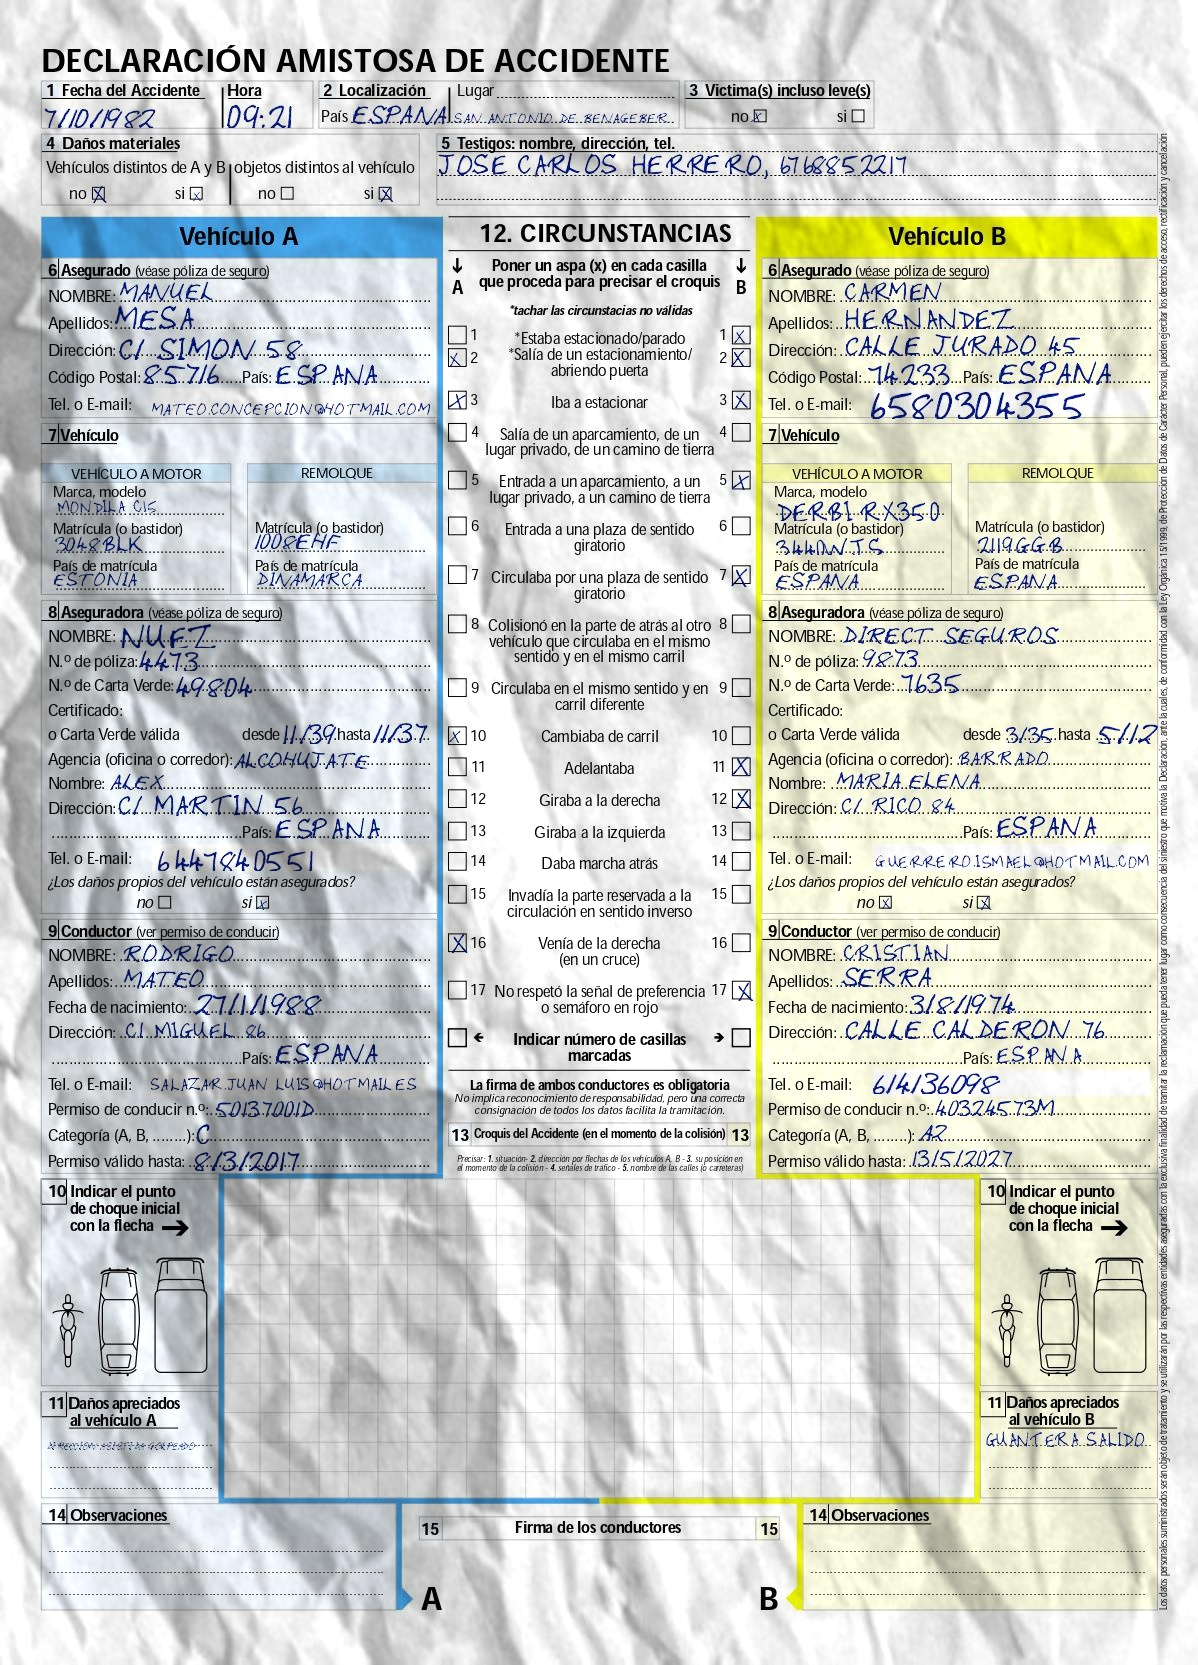 DECLARACIÓN AMISTOSA DE ACCIDENTE
1 Fecha del Accidente Hora 2 Localización Lugar 3 Victima(s) incluso leve(s)
7/10/1982 09:21 País ESPANA SAN ANTONIO DE BENAGEBER no X si
4 Daños materiales 5 Testigos: nombre, dirección, tel.
Vehículos distintos de A y B objetos distintos al vehículo JOSE CARLOS HERRERO, 6768852217
no X si X no si X
Vehículo A
6 Asegurado (véase póliza de seguro)
NOMBRE: MANUEL
Apellidos: MESA
Dirección: C/ SIMON 58
Código Postal: 85716 País: ESPANA
Tel. o E-mail: MATEO.CONCEPCION@HOTMAIL.COM
7 Vehículo
VEHÍCULO A MOTOR REMOLQUE
Marca, modelo
MONDILA C15
Matrícula (o bastidor) Matrícula (o bastidor)
3048BLK 1008EHF
País de matrícula País de matrícula
ESTONIA DINAMARCA
8 Aseguradora (véase póliza de seguro)
NOMBRE: NUEZ
N.º de póliza: 4473
N.º de Carta Verde: 49804
Certificado:
o Carta Verde válida desde 11/39 hasta 11/37
Agencia (oficina o corredor): ALCOHUJATE
Nombre: ALEX
Dirección: C/ MARTIN 56
País: ESPANA
Tel. o E-mail: 6447840551
¿Los daños propios del vehículo están asegurados?
no si X
9 Conductor (ver permiso de conducir)
NOMBRE: RODRIGO
Apellidos: MATEO
Fecha de nacimiento: 27/1/1988
Dirección: C/ MIGUEL 86
País: ESPANA
Tel. o E-mail: SALAZAR.JUAN LUIS@HOTMAIL.ES
Permiso de conducir n.º: 50137001D
Categoría (A, B, ........): C
Permiso válido hasta: 8/3/2017
12. CIRCUNSTANCIAS
A Poner un aspa (x) en cada casilla que proceda para precisar el croquis B
*tachar las circunstacias no válidas
1 *Estaba estacionado/parado 1 X
X 2 *Salía de un estacionamiento/ abriendo puerta 2 X
X 3 Iba a estacionar 3 X
4 Salía de un aparcamiento, de un lugar privado, de un camino de tierra 4
5 Entrada a un aparcamiento, a un lugar privado, a un camino de tierra 5 X
6 Entrada a una plaza de sentido giratorio 6
7 Circulaba por una plaza de sentido giratorio 7 X
8 Colisionó en la parte de atrás al otro vehículo que circulaba en el mismo sentido y en el mismo carril 8
9 Circulaba en el mismo sentido y en carril diferente 9
X 10 Cambiaba de carril 10
11 Adelantaba 11 X
12 Giraba a la derecha 12 X
13 Giraba a la izquierda 13
14 Daba marcha atrás 14
15 Invadía la parte reservada a la circulación en sentido inverso 15
X 16 Venía de la derecha (en un cruce) 16
17 No respetó la señal de preferencia o semáforo en rojo 17 X
Indicar número de casillas marcadas
La firma de ambos conductores es obligatoria
No implica reconocimiento de responsabilidad, pero una correcta consignación de todos los datos facilita la tramitación.
13 Croquis del Accidente (en el momento de la colisión) 13
Precisar: 1. situación- 2. dirección por flechas de los vehículos A, B - 3. su posición en el momento de la colisión - 4. señales de tráfico - 5. nombre de las calles (o carreteras)
Vehículo B
6 Asegurado (véase póliza de seguro)
NOMBRE: CARMEN
Apellidos: HERNANDEZ
Dirección: CALLE JURADO 45
Código Postal: 74233 País: ESPANA
Tel. o E-mail: 6580304355
7 Vehículo
VEHÍCULO A MOTOR REMOLQUE
Marca, modelo
DERBI RX350
Matrícula (o bastidor) Matrícula (o bastidor)
3440WTS 2119GGB
País de matrícula País de matrícula
ESPANA ESPANA
8 Aseguradora (véase póliza de seguro)
NOMBRE: DIRECT SEGUROS
N.º de póliza: 9873
N.º de Carta Verde: 7635
Certificado:
o Carta Verde válida desde 3/35 hasta 5/12
Agencia (oficina o corredor): BARRADO
Nombre: MARIA ELENA
Dirección: C/ RICO 84
País: ESPANA
Tel. o E-mail: GUERRERO.ISMAEL@HOTMAIL.COM
¿Los daños propios del vehículo están asegurados?
no X si X
9 Conductor (ver permiso de conducir)
NOMBRE: CRISTIAN
Apellidos: SERRA
Fecha de nacimiento: 3/8/1974
Dirección: CALLE CALDERON 76
País: ESPANA
Tel. o E-mail: 614136098
Permiso de conducir n.º: 40324573M
Categoría (A, B, ........): A2
Permiso válido hasta: 13/5/2027
10 Indicar el punto de choque inicial con la flecha
10 Indicar el punto de choque inicial con la flecha
11 Daños apreciados al vehículo A
11 Daños apreciados al vehículo B
GUANTERA SALIDO
14 Observaciones
15 Firma de los conductores 15
14 Observaciones
A B